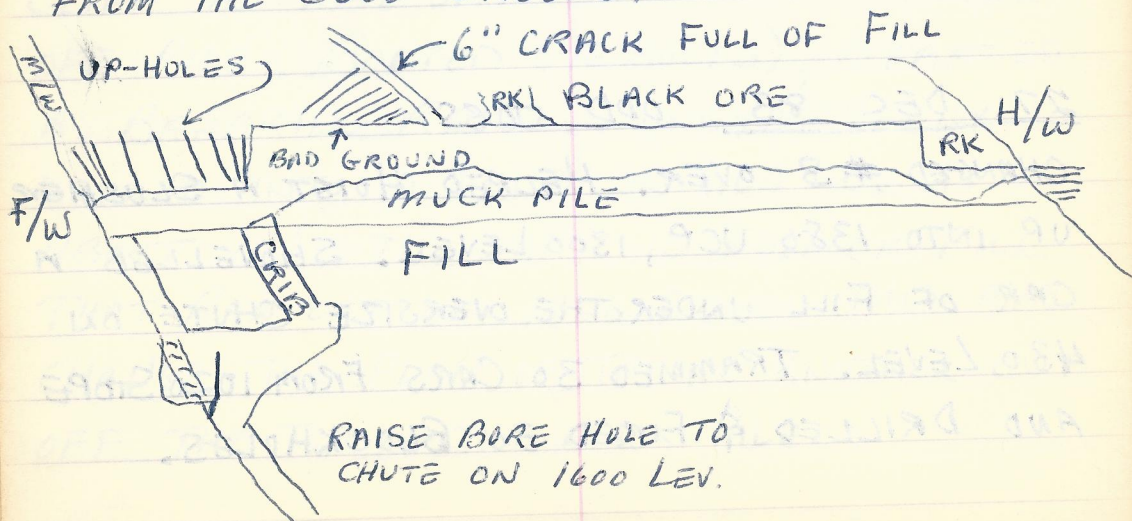 FROM THE
6" CRACK FULL OF FILL
UP-HOLES
RK BLACK ORE
H/W
BAD GROUND
RK
MUCK PILE
F/W
CRIB
FILL
RAISE BORE HOLE TO
CHUTE ON 1600 LEV.